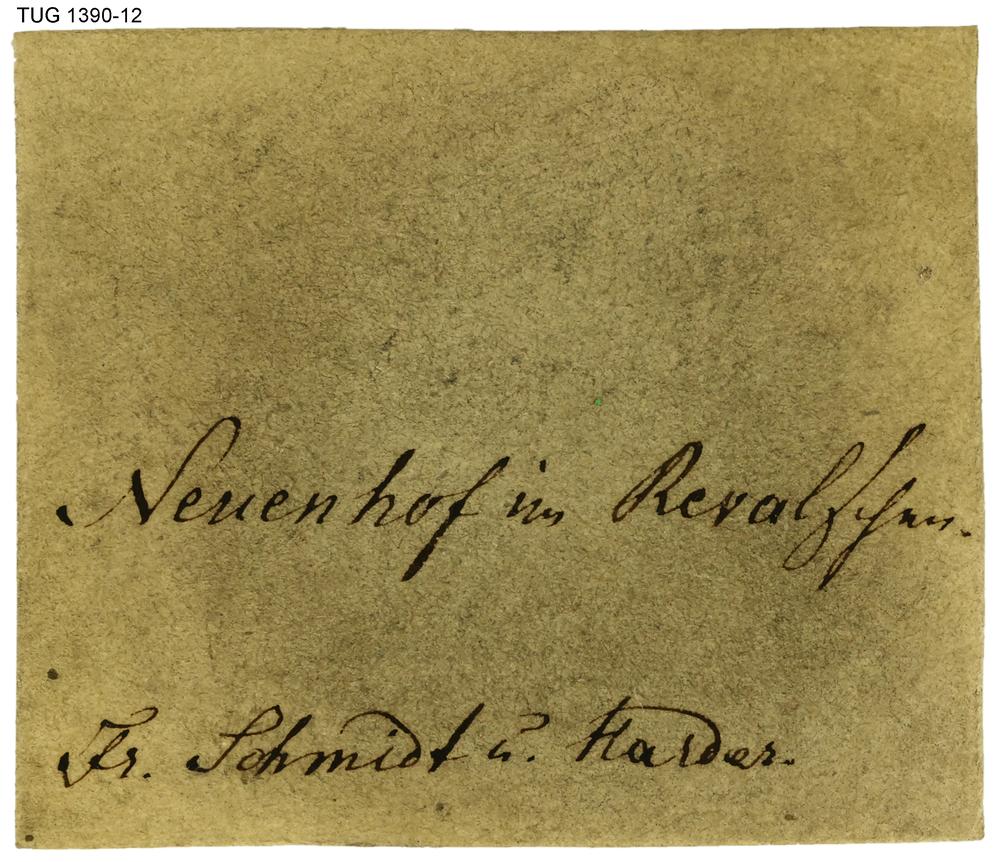 TUG 1390-12
Neuenhof im Revalschen.
Fr. Schmidt u. Harder.